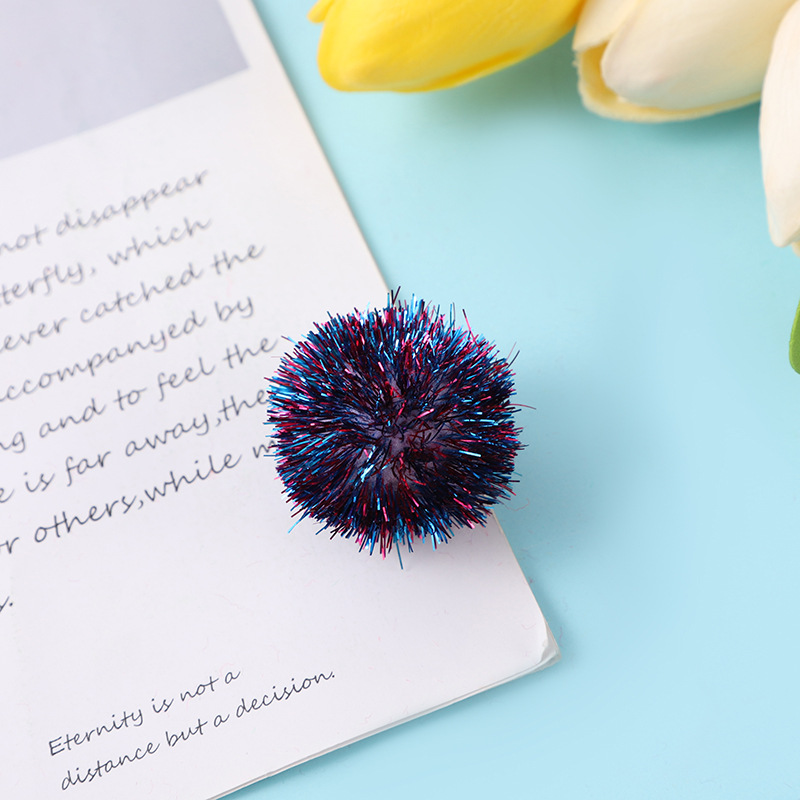 not disappear
terfly, which
ever catched the
accompanyed by
ng and to feel the
e is far away,the
or others,while m
s.
Eternity is not a
distance but a decision.